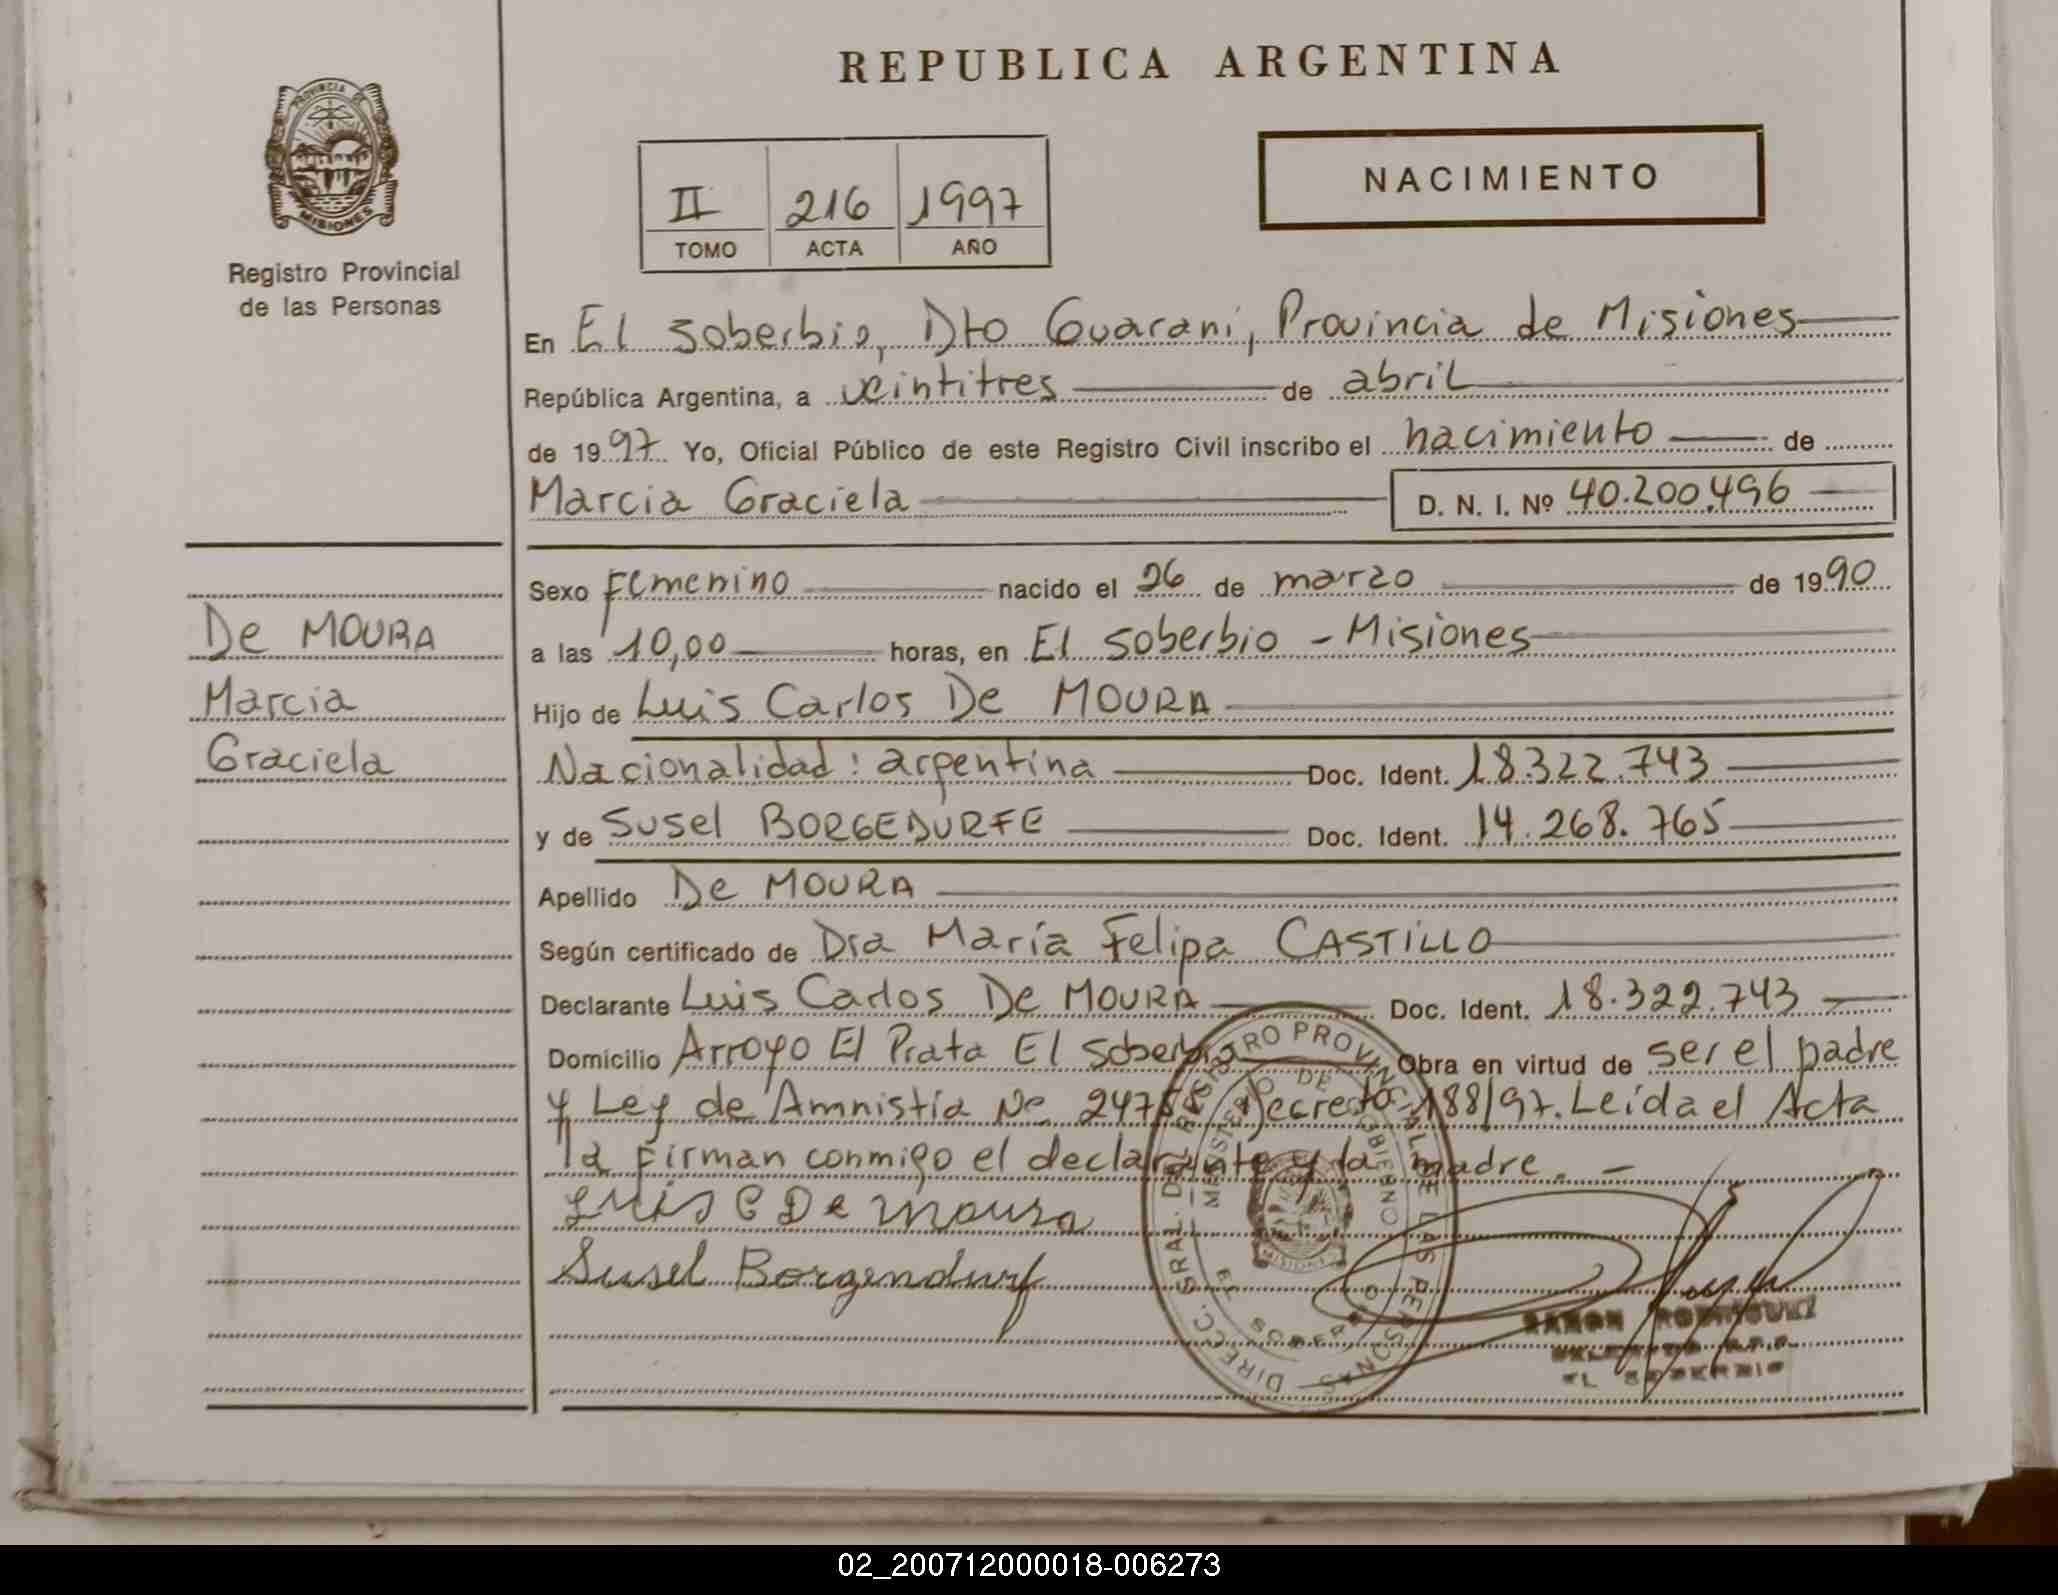 REPUBLICA ARGENTINA
PROVINCIA DE
MISIONES
Registro Provincial
de las Personas
II 216 1997
TOMO ACTA AÑO
NACIMIENTO
En El Soberbio, Dto Guarani, Provincia de Misiones
República Argentina, a veintitres de abril
de 1997 Yo, Oficial Público de este Registro Civil inscribo el nacimiento de
Marcia Graciela D. N. I. Nº 40.200.496
Sexo Femenino nacido el 26 de marzo de 1990
De MOURA
a las 10,00 horas, en El Soberbio - Misiones
Marcia
Hijo de Luis Carlos De MOURA
Graciela
Nacionalidad: argentina Doc. Ident. 18.322.743
y de Susel BORGEDURFE Doc. Ident. 14.268.765
Apellido De MOURA
Según certificado de Dra María Felipa CASTILLO
Declarante Luis Carlos De MOURA Doc. Ident. 18.322.743
Domicilio Arroyo El Prata El Soberbio Obra en virtud de ser el padre
y Ley de Amnistia Nº Decreto 188/97. Leída el Acta
la firman conmigo el declarante y la madre. -
Luis C De Moura
Susel Borgendurf
DIRECC. GRAL. DEL REGISTRO PROVINCIAL DE LAS PERSONAS
MINISTERIO DE GOBIERNO
EL SOBERBIO
MISIONES
RAMON RODRIGUEZ
EL SOBERBIO
02_200712000018-006273